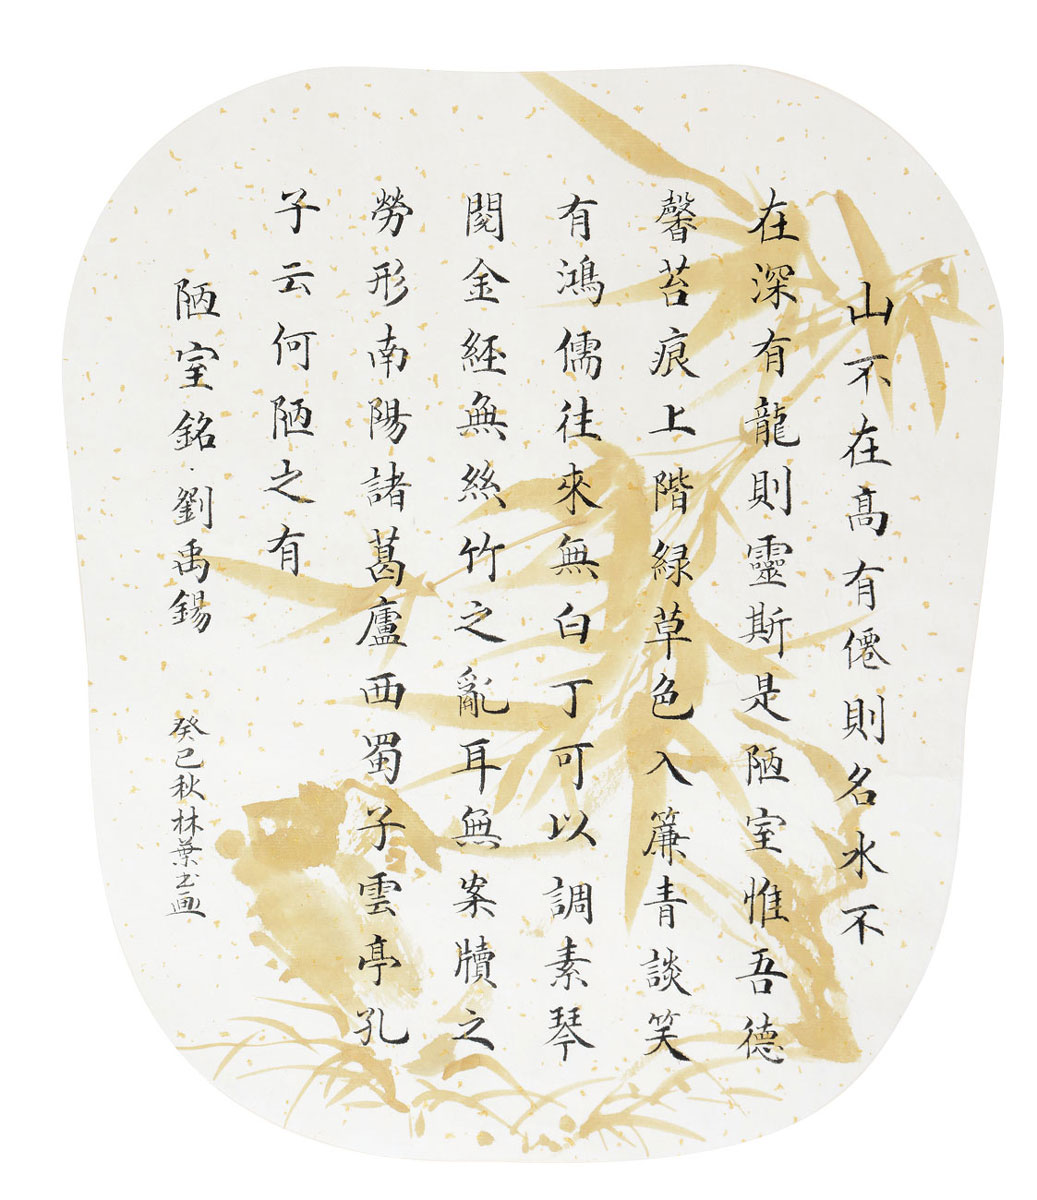 山不在高有僊則名水不
在深有龍則靈斯是陋室惟吾德
馨苔痕上階緑草色入簾青談笑
有鴻儒往來無白丁可以調素琴
閱金經無絲竹之亂耳無案牘之
勞形南陽諸葛廬西蜀子雲亭孔
子云何陋之有
陋室銘·劉禹錫
癸巳秋林葉书画